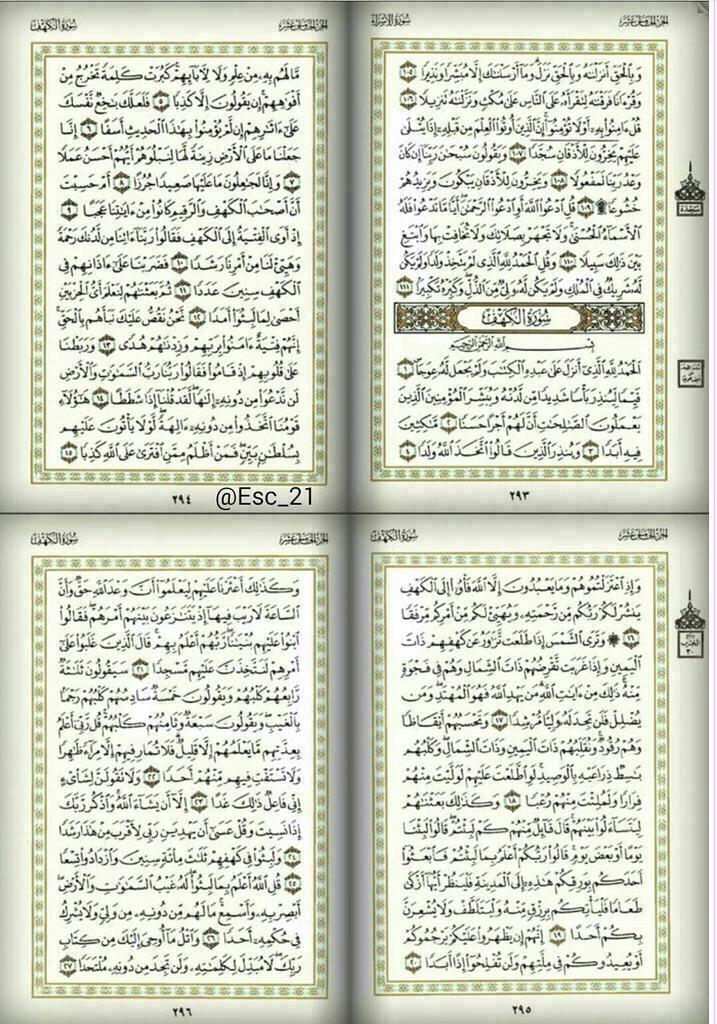 سُورَةُ الإِسْرَاءِ
الجُزْءُ الخَامِسَ عَشَرَ
وَبِٱلْحَقِّ أَنزَلْنَٰهُ وَبِٱلْحَقِّ نَزَلَ ۗ وَمَآ أَرْسَلْنَٰكَ إِلَّا مُبَشِّرًا وَنَذِيرًا ١٠٥
وَقُرْءَانًا فَرَقْنَٰهُ لِتَقْرَأَهُۥ عَلَى ٱلنَّاسِ عَلَىٰ مُكْثٍ وَنَزَّلْنَٰهُ تَنزِيلًا ١٠٦
قُلْ ءَامِنُوا۟ بِهِۦٓ أَوْ لَا تُؤْمِنُوٓا۟ ۚ إِنَّ ٱلَّذِينَ أُوتُوا۟ ٱلْعِلْمَ مِن قَبْلِهِۦٓ إِذَا يُتْلَىٰ
عَلَيْهِمْ يَخِرُّونَ لِلْأَذْقَانِ سُجَّدًا ١٠٧ وَيَقُولُونَ سُبْحَٰنَ رَبِّنَآ إِن كَانَ
وَعْدُ رَبِّنَا لَمَفْعُولًا ١٠٨ وَيَخِرُّونَ لِلْأَذْقَانِ يَبْكُونَ وَيَزِيدُهُمْ
خُشُوعًا ۩ ١٠٩ قُلِ ٱدْعُوا۟ ٱللَّهَ أَوِ ٱدْعُوا۟ ٱلرَّحْمَٰنَ ۖ أَيًّا مَّا تَدْعُوا۟ فَلَهُ
ٱلْأَسْمَآءُ ٱلْحُسْنَىٰ ۚ وَلَا تَجْهَرْ بِصَلَاتِكَ وَلَا تُخَافِتْ بِهَا وَٱبْتَغِ
بَيْنَ ذَٰلِكَ سَبِيلًا ١١٠ وَقُلِ ٱلْحَمْدُ لِلَّهِ ٱلَّذِى لَمْ يَتَّخِذْ وَلَدًا وَلَمْ يَكُن
لَّهُۥ شَرِيكٌ فِى ٱلْمُلْكِ وَلَمْ يَكُن لَّهُۥ وَلِىٌّ مِّنَ ٱلذُّلِّ ۖ وَكَبِّرْهُ تَكْبِيرًۢا ١١١
سُورَةُ الكَهْفِ
بِسْمِ ٱللَّهِ ٱلرَّحْمَٰنِ ٱلرَّحِيمِ
ٱلْحَمْدُ لِلَّهِ ٱلَّذِىٓ أَنزَلَ عَلَىٰ عَبْدِهِ ٱلْكِتَٰبَ وَلَمْ يَجْعَل لَّهُۥ عِوَجَا ۜ ١
قَيِّمًا لِّيُنذِرَ بَأْسًا شَدِيدًا مِّن لَّدُنْهُ وَيُبَشِّرَ ٱلْمُؤْمِنِينَ ٱلَّذِينَ
يَعْمَلُونَ ٱلصَّٰلِحَٰتِ أَنَّ لَهُمْ أَجْرًا حَسَنًا ٢ مَّٰكِثِينَ
فِيهِ أَبَدًا ٣ وَيُنذِرَ ٱلَّذِينَ قَالُوا۟ ٱتَّخَذَ ٱللَّهُ وَلَدًا ٤
سَجْدَة
٢٩٣
سُورَةُ الكَهْفِ
الجُزْءُ الخَامِسَ عَشَرَ
مَّا لَهُم بِهِۦ مِنْ عِلْمٍ وَلَا لِءَابَآئِهِمْ ۚ كَبُرَتْ كَلِمَةً تَخْرُجُ مِنْ
أَفْوَٰهِهِمْ ۚ إِن يَقُولُونَ إِلَّا كَذِبًا ٥ فَلَعَلَّكَ بَٰخِعٌ نَّفْسَكَ
عَلَىٰٓ ءَاثَٰرِهِمْ إِن لَّمْ يُؤْمِنُوا۟ بِهَٰذَا ٱلْحَدِيثِ أَسَفًا ٦ إِنَّا
جَعَلْنَا مَا عَلَى ٱلْأَرْضِ زِينَةً لَّهَا لِنَبْلُوَهُمْ أَيُّهُمْ أَحْسَنُ عَمَلًا
٧ وَإِنَّا لَجَٰعِلُونَ مَا عَلَيْهَا صَعِيدًا جُرُزًا ٨ أَمْ حَسِبْتَ
أَنَّ أَصْحَٰبَ ٱلْكَهْفِ وَٱلرَّقِيمِ كَانُوا۟ مِنْ ءَايَٰتِنَا عَجَبًا ٩
إِذْ أَوَى ٱلْفِتْيَةُ إِلَى ٱلْكَهْفِ فَقَالُوا۟ رَبَّنَآ ءَاتِنَا مِن لَّدُنكَ رَحْمَةً
وَهَيِّئْ لَنَا مِنْ أَمْرِنَا رَشَدًا ١٠ فَضَرَبْنَا عَلَىٰٓ ءَاذَانِهِمْ فِى
ٱلْكَهْفِ سِنِينَ عَدَدًا ١١ ثُمَّ بَعَثْنَٰهُمْ لِنَعْلَمَ أَىُّ ٱلْحِزْبَيْنِ
أَحْصَىٰ لِمَا لَبِثُوٓا۟ أَمَدًا ١٢ نَّحْنُ نَقُصُّ عَلَيْكَ نَبَأَهُم بِٱلْحَقِّ ۚ
إِنَّهُمْ فِتْيَةٌ ءَامَنُوا۟ بِرَبِّهِمْ وَزِدْنَٰهُمْ هُدًى ١٣ وَرَبَطْنَا
عَلَىٰ قُلُوبِهِمْ إِذْ قَامُوا۟ فَقَالُوا۟ رَبُّنَا رَبُّ ٱلسَّمَٰوَٰتِ وَٱلْأَرْضِ
لَن نَّدْعُوَا۟ مِن دُونِهِۦٓ إِلَٰهًا ۖ لَّقَدْ قُلْنَآ إِذًا شَطَطًا ١٤ هَٰٓؤُلَآءِ
قَوْمُنَا ٱتَّخَذُوا۟ مِن دُونِهِۦٓ ءَالِهَةً ۖ لَّوْلَا يَأْتُونَ عَلَيْهِم
بِسُلْطَٰنٍۭ بَيِّنٍ ۖ فَمَنْ أَظْلَمُ مِمَّنِ ٱفْتَرَىٰ عَلَى ٱللَّهِ كَذِبًا ١٥
٢٩٤
@Esc_21
سُورَةُ الكَهْفِ
الجُزْءُ الخَامِسَ عَشَرَ
وَإِذِ ٱعْتَزَلْتُمُوهُمْ وَمَا يَعْبُدُونَ إِلَّا ٱللَّهَ فَأْوُۥٓا۟ إِلَى ٱلْكَهْفِ
يَنشُرْ لَكُمْ رَبُّكُم مِّن رَّحْمَتِهِۦ وَيُهَيِّئْ لَكُم مِّنْ أَمْرِكُم مِّرْفَقًا
١٦ ۞ وَتَرَى ٱلشَّمْسَ إِذَا طَلَعَت تَّزَٰوَرُ عَن كَهْفِهِمْ ذَاتَ
ٱلْيَمِينِ وَإِذَا غَرَبَت تَّقْرِضُهُمْ ذَاتَ ٱلشِّمَالِ وَهُمْ فِى فَجْوَةٍ
مِّنْهُ ۚ ذَٰلِكَ مِنْ ءَايَٰتِ ٱللَّهِ ۗ مَن يَهْدِ ٱللَّهُ فَهُوَ ٱلْمُهْتَدِ ۖ وَمَن
يُضْلِلْ فَلَن تَجِدَ لَهُۥ وَلِيًّا مُّرْشِدًا ١٧ وَتَحْسَبُهُمْ أَيْقَاظًا
وَهُمْ رُقُودٌ ۚ وَنُقَلِّبُهُمْ ذَاتَ ٱلْيَمِينِ وَذَاتَ ٱلشِّمَالِ ۖ وَكَلْبُهُم
بَٰسِطٌ ذِرَاعَيْهِ بِٱلْوَصِيدِ ۚ لَوِ ٱطَّلَعْتَ عَلَيْهِمْ لَوَلَّيْتَ مِنْهُمْ
فِرَارًا وَلَمُلِئْتَ مِنْهُمْ رُعْبًا ١٨ وَكَذَٰلِكَ بَعَثْنَٰهُمْ
لِيَتَسَآءَلُوا۟ بَيْنَهُمْ ۚ قَالَ قَآئِلٌ مِّنْهُمْ كَمْ لَبِثْتُمْ ۖ قَالُوا۟ لَبِثْنَا
يَوْمًا أَوْ بَعْضَ يَوْمٍ ۚ قَالُوا۟ رَبُّكُمْ أَعْلَمُ بِمَا لَبِثْتُمْ فَٱبْعَثُوٓا۟
أَحَدَكُم بِوَرِقِكُمْ هَٰذِهِۦٓ إِلَى ٱلْمَدِينَةِ فَلْيَنظُرْ أَيُّهَآ أَزْكَىٰ
طَعَامًا فَلْيَأْتِكُم بِرِزْقٍ مِّنْهُ وَلْيَتَلَطَّفْ وَلَا يُشْعِرَنَّ
بِكُمْ أَحَدًا ١٩ إِنَّهُمْ إِن يَظْهَرُوا۟ عَلَيْكُمْ يَرْجُمُوكُمْ
أَوْ يُعِيدُوكُمْ فِى مِلَّتِهِمْ وَلَن تُفْلِحُوٓا۟ إِذًا أَبَدًا ٢٠
٢٩٥
سُورَةُ الكَهْفِ
الجُزْءُ الخَامِسَ عَشَرَ
وَكَذَٰلِكَ أَعْثَرْنَا عَلَيْهِمْ لِيَعْلَمُوٓا۟ أَنَّ وَعْدَ ٱللَّهِ حَقٌّ وَأَنَّ
ٱلسَّاعَةَ لَا رَيْبَ فِيهَآ إِذْ يَتَنَٰزَعُونَ بَيْنَهُمْ أَمْرَهُمْ ۖ فَقَالُوا۟
ٱبْنُوا۟ عَلَيْهِم بُنْيَٰنًا ۖ رَّبُّهُمْ أَعْلَمُ بِهِمْ ۚ قَالَ ٱلَّذِينَ غَلَبُوا۟ عَلَىٰٓ
أَمْرِهِمْ لَنَتَّخِذَنَّ عَلَيْهِم مَّسْجِدًا ٢١ سَيَقُولُونَ ثَلَٰثَةٌ
رَّابِعُهُمْ كَلْبُهُمْ وَيَقُولُونَ خَمْسَةٌ سَادِسُهُمْ كَلْبُهُمْ رَجْمًۢا
بِٱلْغَيْبِ ۖ وَيَقُولُونَ سَبْعَةٌ وَثَامِنُهُمْ كَلْبُهُمْ ۚ قُل رَّبِّىٓ أَعْلَمُ
بِعِدَّتِهِم مَّا يَعْلَمُهُمْ إِلَّا قَلِيلٌ ۗ فَلَا تُمَارِ فِيهِمْ إِلَّا مِرَآءً ظَٰهِرًا
وَلَا تَسْتَفْتِ فِيهِم مِّنْهُمْ أَحَدًا ٢٢ وَلَا تَقُولَنَّ لِشَا۟ىْءٍ
إِنِّى فَاعِلٌ ذَٰلِكَ غَدًا ٢٣ إِلَّآ أَن يَشَآءَ ٱللَّهُ ۚ وَٱذْكُر رَّبَّكَ
إِذَا نَسِيتَ وَقُلْ عَسَىٰٓ أَن يَهْدِيَنِ رَبِّى لِأَقْرَبَ مِنْ هَٰذَا رَشَدًا
٢٤ وَلَبِثُوا۟ فِى كَهْفِهِمْ ثَلَٰثَ مِا۟ئَةٍ سِنِينَ وَٱزْدَادُوا۟ تِسْعًا
٢٥ قُلِ ٱللَّهُ أَعْلَمُ بِمَا لَبِثُوا۟ ۖ لَهُۥ غَيْبُ ٱلسَّمَٰوَٰتِ وَٱلْأَرْضِ ۖ
أَبْصِرْ بِهِۦ وَأَسْمِعْ ۚ مَا لَهُم مِّن دُونِهِۦ مِن وَلِىٍّ وَلَا يُشْرِكُ
فِى حُكْمِهِۦٓ أَحَدًا ٢٦ وَٱتْلُ مَآ أُوحِىَ إِلَيْكَ مِن كِتَابِ
رَبِّكَ ۖ لَا مُبَدِّلَ لِكَلِمَٰتِهِۦ وَلَن تَجِدَ مِن دُونِهِۦ مُلْتَحَدًا ٢٧
٢٩٦